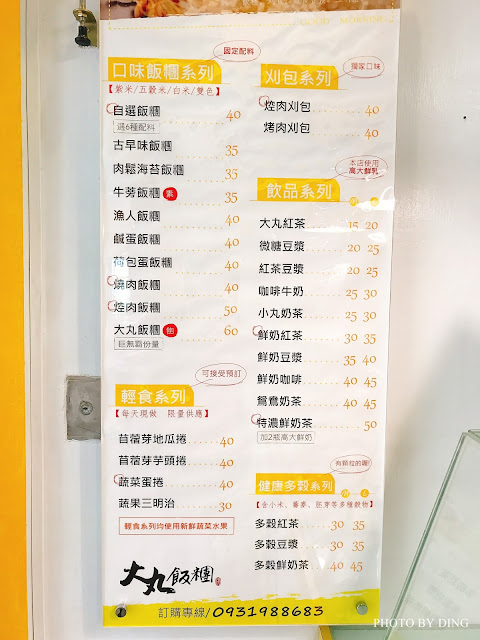 GOOD MORNING
固定配料
口味飯糰系列
【紫米/五穀米/白米/雙色】
自選飯糰 40
選6種配料
古早味飯糰 35
肉鬆海苔飯糰 35
牛蒡飯糰 素 35
漁人飯糰 40
鹹蛋飯糰 40
荷包蛋飯糰 40
燒肉飯糰 40
焢肉飯糰 50
大丸飯糰 60
巨無霸份量
可接受預訂
輕食系列
【每天現做 限量供應】
苜蓿芽地瓜捲 40
苜蓿芽芋頭捲 40
蔬菜蛋捲 40
蔬果三明治 30
輕食系列均使用新鮮蔬菜水果
獨家口味
刈包系列
焢肉刈包 40
烤肉刈包 40
本店使用
高大鮮乳
飲品系列
大丸紅茶 15 20
微糖豆漿 20 25
紅茶豆漿 20 25
咖啡牛奶 25 30
小丸奶茶 25 30
鮮奶紅茶 30 35
鮮奶豆漿 35 40
鮮奶咖啡 40 45
鴛鴦奶茶 40 45
特濃鮮奶茶 50
加2瓶高大鮮奶
有顆粒的喔!
健康多穀系列
【含小米、蕎麥、胚芽等多種穀物】
多穀紅茶 30 35
多穀豆漿 30 35
多穀鮮奶茶 40 45
大丸飯糰
訂購專線/0931988683
PHOTO BY DING